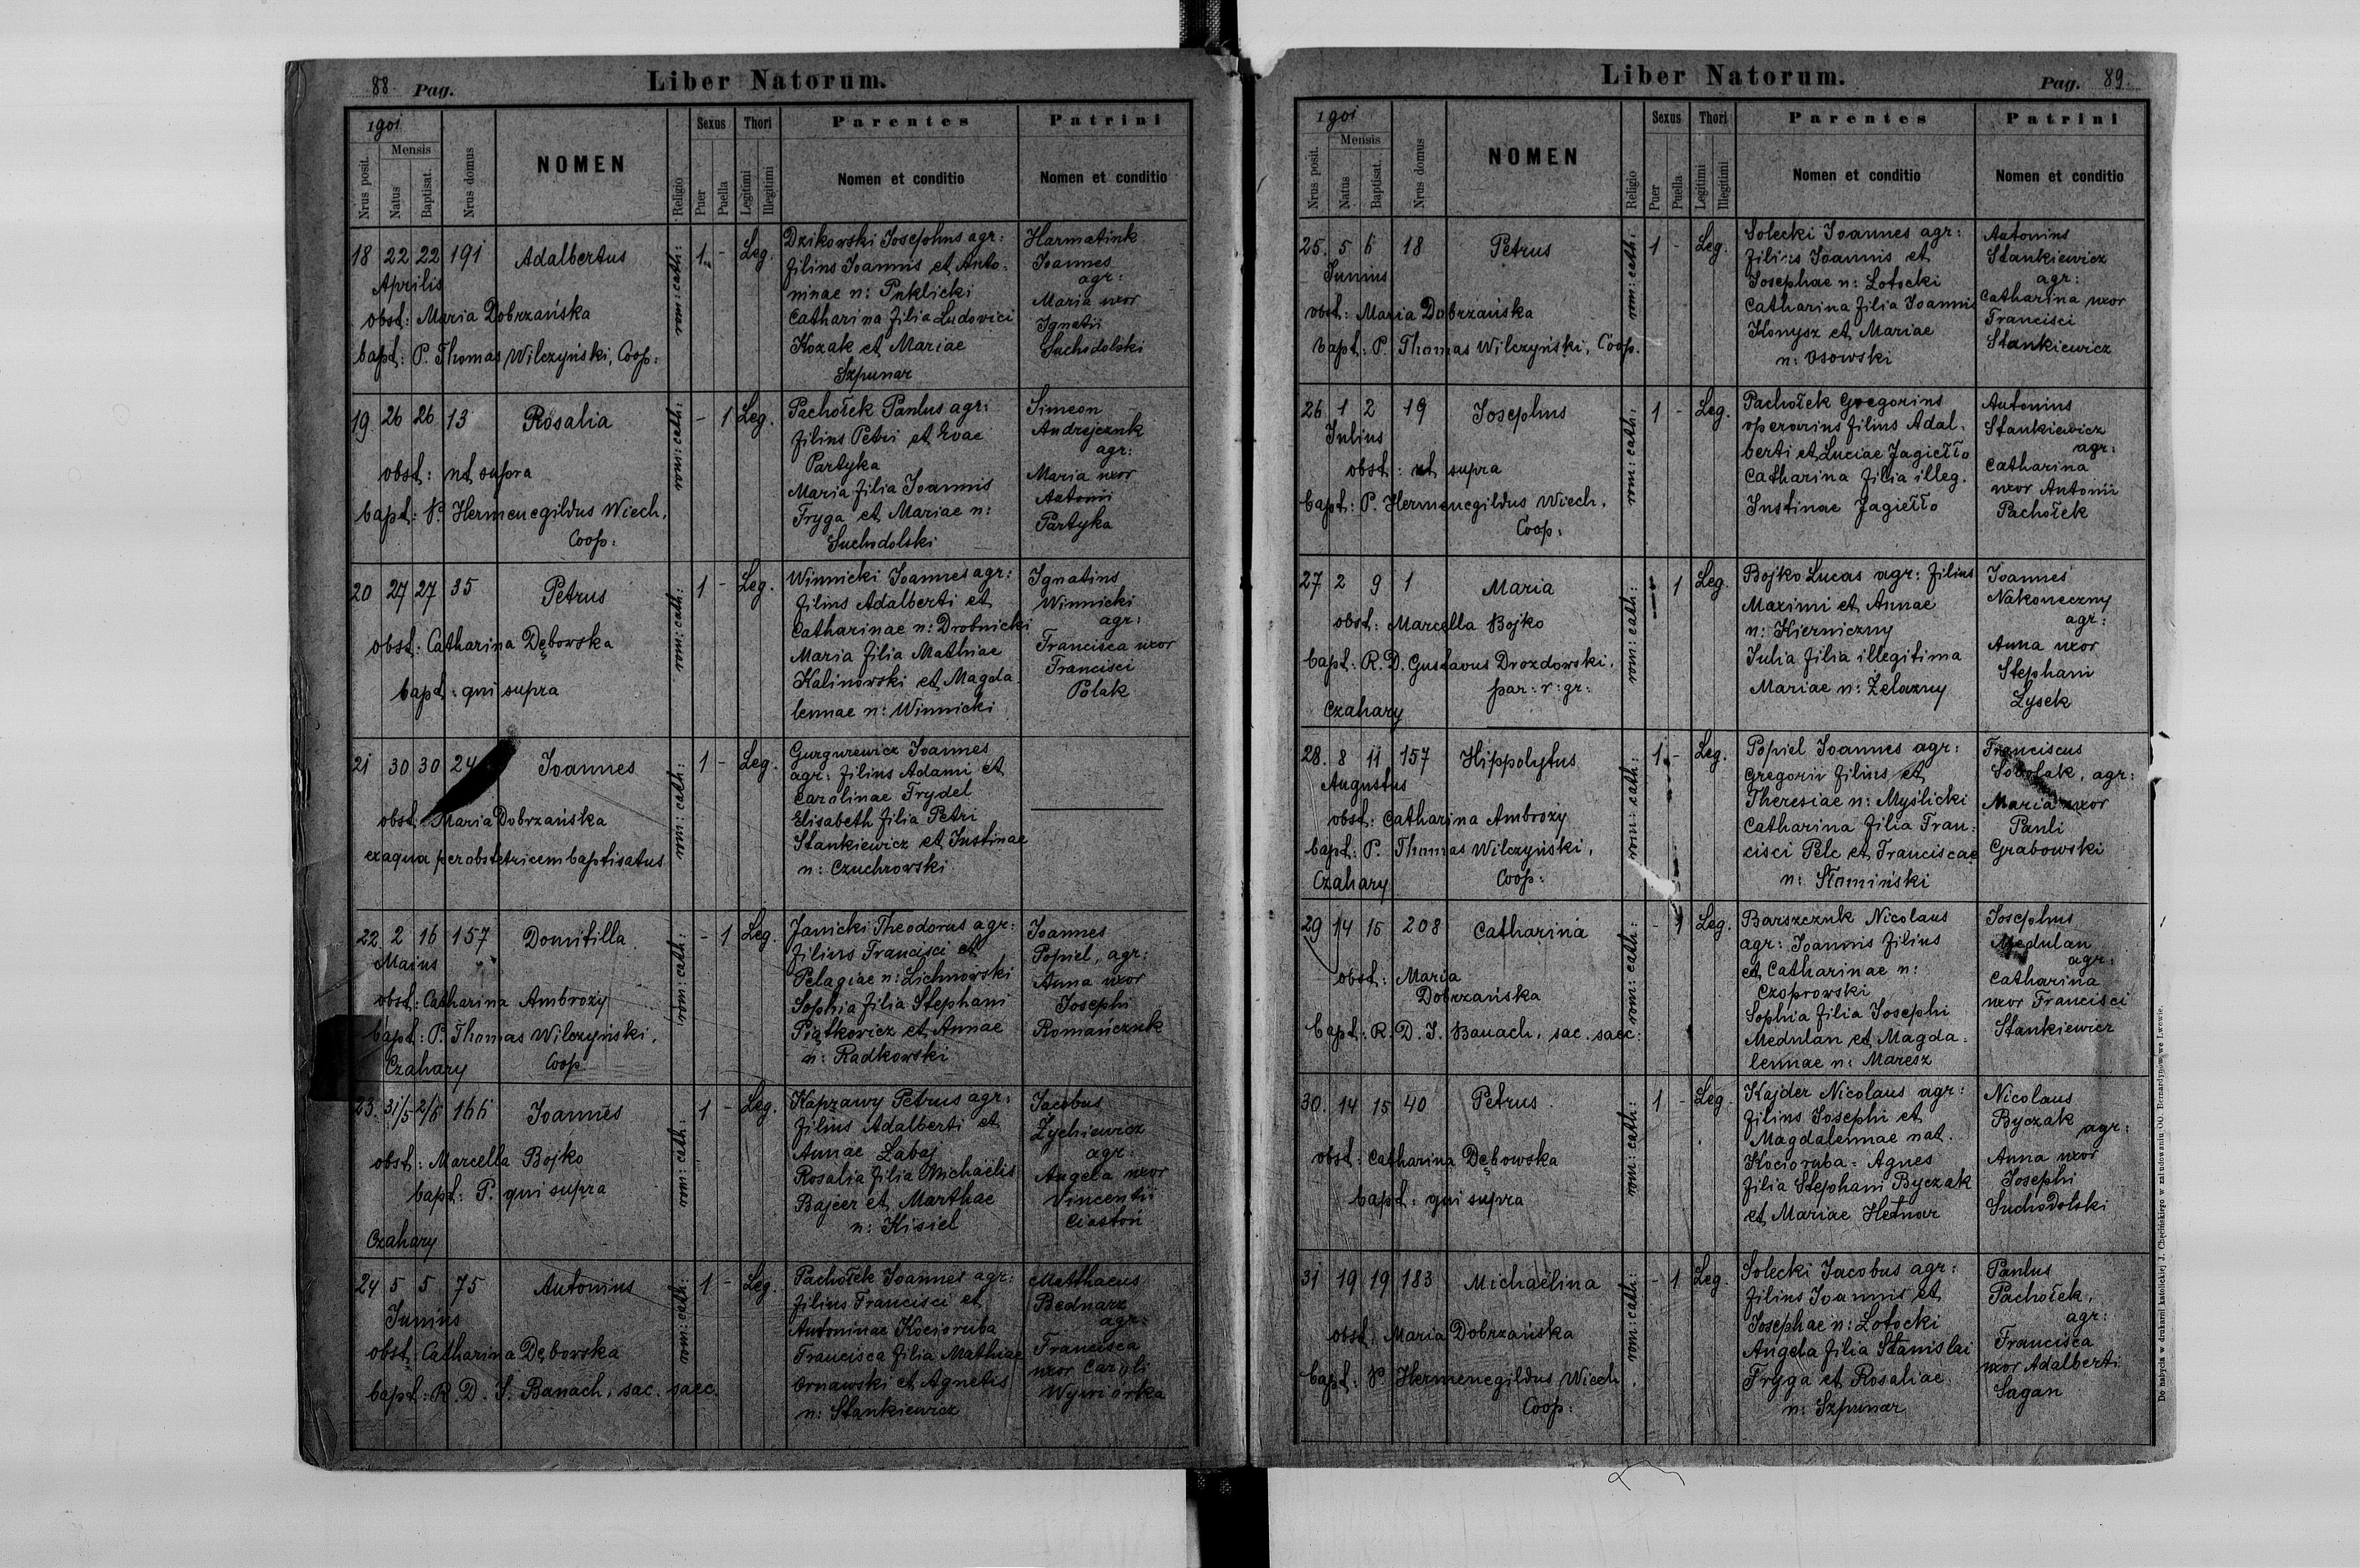 88 Pag. Liber Natorum.
1901
Nrus posit.
Mensis
Natus
Baptisat.
Nrus domus
NOMEN
Religio
Sexus
Puer
Puella
Thori
Legitimi
Illegitimi
Parentes
Nomen et conditio
Patrini
Nomen et conditio
18 22 22 191 Adalbertus
Aprilis
obst: Maria Dobrzańska
bapt: P. Thomas Wilczyński, Coop:
rom: cath:
1 - Leg.
Dzikowski Josephus agr:
filius Joannis et Anto-
ninae n: Puklicki
Catharina filia Ludovici
Kozak et Mariae
Szpunar
Harmatiuk
Joannes
agr:
Maria uxor
Ignatii
Suchodolski
19. 26 26 13 Rosalia
obst: ut supra
bapt: P. Hermenegildus Wiech,
Coop:
rom: cath:
- 1 Leg.
Pachołek Paulus agr:
filius Petri et Evae
Partyka
Maria filia Joannis
Fryga et Mariae n:
Suchodolski
Simeon
Andrejczuk
agr:
Maria uxor
Antonii
Partyka
20 27 27 35 Petrus
obst: Catharina Dębowska
bapt: qui supra
rom: cath:
1 - Leg.
Winnicki Joannes agr:
filius Adalberti et
Catharinae n: Drobnicki
Maria filia Mathiae
Kalinowski et Magda
lennae n: Winnicki
Ignatius
Winnicki
agr:
Francisca uxor
Francisci
Polak
21 30 30 24 Joannes
obst: Maria Dobrzańska
ex aqua per obstetricem baptisatus
rom: cath:
1 - Leg.
Gurgurewicz Joannes
agr: filius Adami et
Carolinae Frydel
Elisabeth filia Petri
Stankiewicz et Justinae
n: Czuchrowski
22. 2 16 157 Domitilla
Maius
obst: Catharina Ambroży
bapt: P. Thomas Wilczyński,
Czahary Coop
rom: cath:
- 1 Leg.
Janicki Theodorus agr:
filius Francisci et
Pelagiae n: Lichnowski
Sophia filia Stephani
Piątkowicz et Annae
n: Radkowski
Joannes
Popiel, agr:
Anna uxor
Josephi
Romańczuk
23. 31/5 2/6 166 Joannes
obst: Marcella Bojko
bapt: P. qui supra
Czahary
rom: cath:
1 - Leg.
Kaprawy Petrus agr:
filius Adalberti et
Annae Łabaj
Rosalia filia Michaëlis
Bajcer et Marthae
n: Kisiel
Jacobus
Zychiewicz
agr:
Angela uxor
Vincentii
Ciastoń
24 5 5 75 Antonius
Junius
obst: Catharina Dębowska
bapt: R. D. J. Banach, sac. saec.
rom: cath:
1 - Leg.
Pachołek Joannes agr:
filius Francisci et
Antoninae Kocioruba
Francisca filia Mathiae
Ornawski et Agnetis
n: Stankiewicz
Matthaeus
Bednarz
agr:
Francisca
uxor Caroli
Wywiórka
Liber Natorum. Pag. 89.
1901
Nrus posit.
Mensis
Natus
Baptisat.
Nrus domus
NOMEN
Religio
Sexus
Puer
Puella
Thori
Legitimi
Illegitimi
Parentes
Nomen et conditio
Patrini
Nomen et conditio
25. 5 6 18 Petrus
Junius
obst: Maria Dobrzańska
bapt: P. Thomas Wilczyński, Coop.
rom: cath:
1 - Leg.
Solecki Joannes agr:
filius Joannis et
Josephae n: Lotocki
Catharina filia Joannis
Konysz et Mariae
n: Osowski
Antonius
Stankiewicz
agr:
Catharina uxor
Francisci
Stankiewicz
26. 1 2 19 Josephus
Julius
obst: ut supra
bapt: P. Hermenegildus Wiech,
Coop:
rom: cath:
1 - Leg.
Pachołek Gregorius
operarius filius Adal-
berti et Luciae Jagiełło
Catharina filia illeg.
Justinae Jagiełło
Antonius
Stankiewicz
agr:
Catharina
uxor Antonii
Pachołek
27 2 9 1 Maria
obst: Marcella Bojko
bapt: R. D. Gustavus Drozdowski,
par: r: gr:
Czahary
rom: cath:
- 1 Leg.
Bojko Lucas agr: filius
Maximi et Annae
n: Kierniczny
Julia filia illegitima
Mariae n: Żelazny
Joannes
Nakoneczny
agr:
Anna uxor
Stephani
Łysek
28. 8 11 157 Hippolytus
Augustus
obst: Catharina Ambroży
bapt: P. Thomas Wilczyński,
Czahary Coop:
rom: cath:
1 - Leg.
Popiel Joannes agr:
Gregorii filius et
Theresiae n: Myślicki
Catharina filia Fran-
cisci Pelc et Franciscae
n: Słomiński
Franciscus
Sobolak, agr:
Maria uxor
Pauli
Grabowski
29 14 15 208 Catharina
obst: Maria
Dobrzańska
bapt: R. D. J. Banach, sac. saec:
rom: cath:
- 1 Leg.
Barszczuk Nicolaus
agr: Joannis filius
et Catharinae n:
Czoprowski
Sophia filia Josephi
Medulan et Magda-
lennae n: Maresz
Josephus
Medulan
agr:
Catharina
uxor Francisci
Stankiewicz
30. 14 15 40 Petrus
obst: Catharina Dębowska
bapt: qui supra
rom: cath:
1 - Leg.
Kajder Nicolaus agr:
filius Josephi et
Magdalennae nat.
Kocioruba - Agnes
filia Stephani Byczak
et Mariae Hetnar
Nicolaus
Byczak agr:
Anna uxor
Josephi
Suchodolski
31 19 19 183 Michaëlina
obst: Maria Dobrzańska
bapt: P. Hermenegildus Wiech,
Coop:
rom: cath:
- 1 Leg.
Solecki Jacobus agr:
filius Joannis et
Josephae n: Lotocki
Angela filia Stanislai
Fryga et Rosaliae
n: Szpunar
Paulus
Pachołek,
agr:
Francisca
uxor Adalberti
Sagan
Do nabycia w drukarni katolickiej J. Chęcińskiego w zabudowaniu OO. Bernardynów we Lwowie.